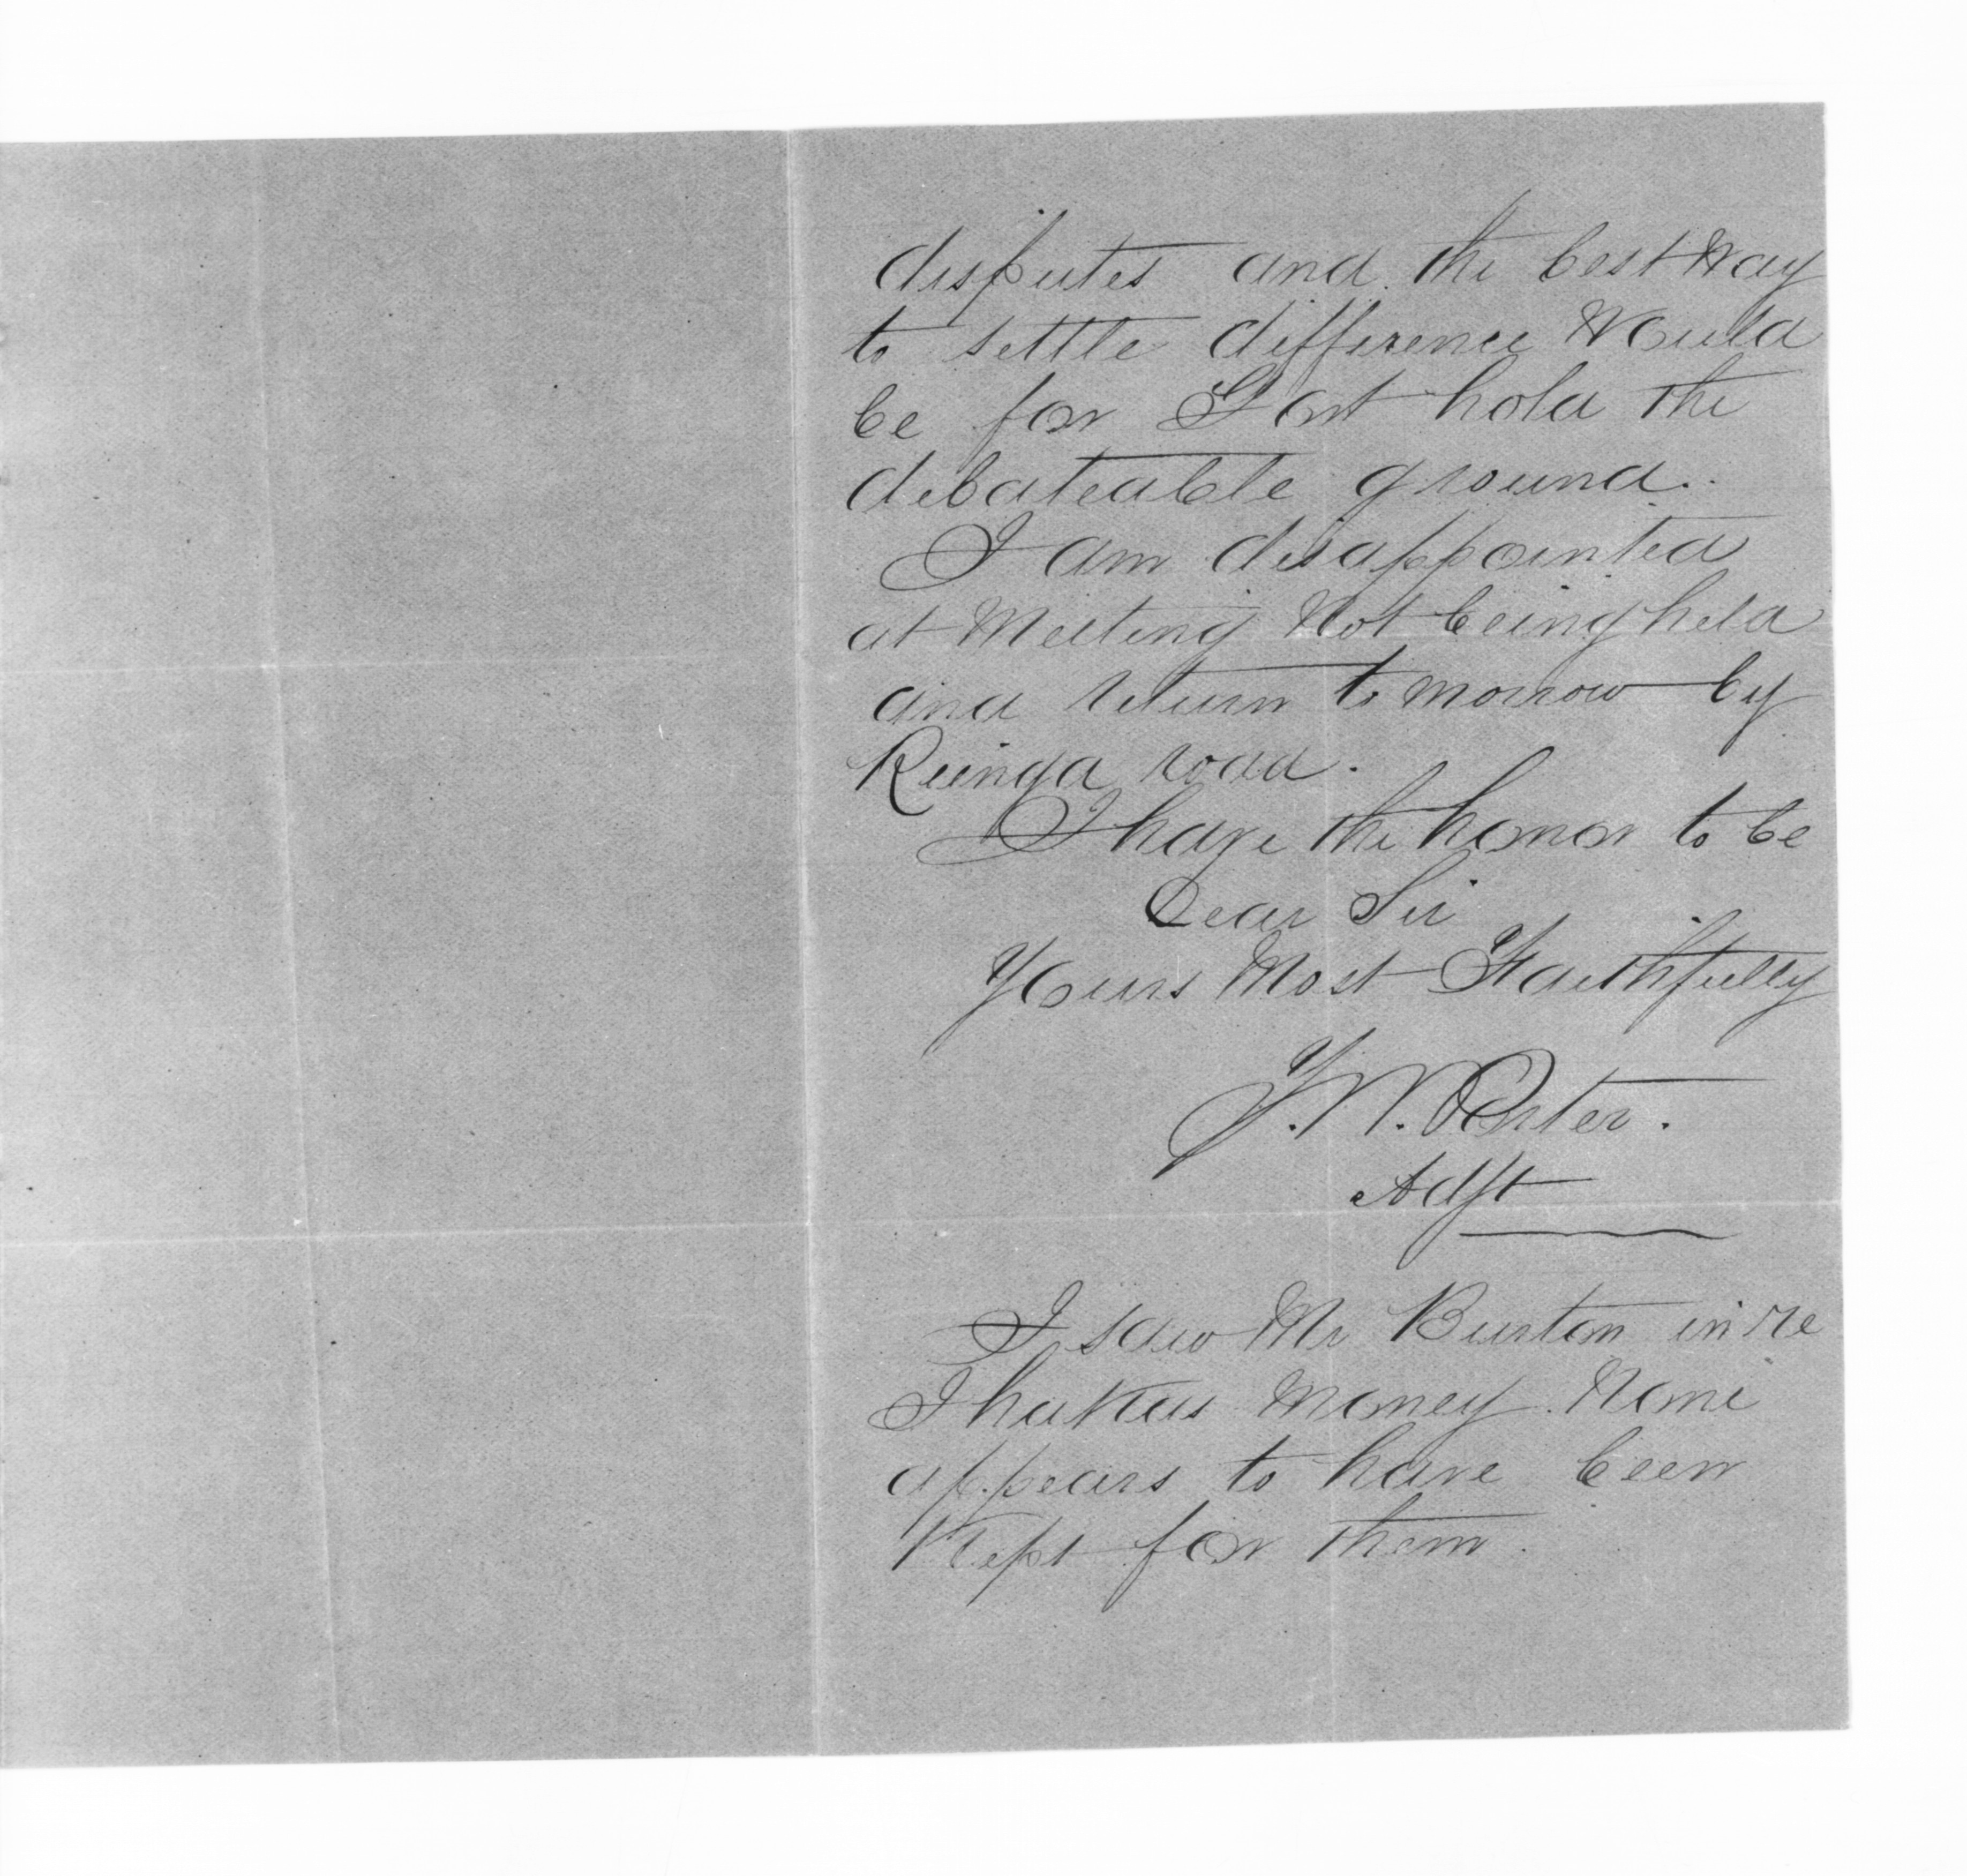 disputes and the best way
to settle difference would
be for Govt hold the
debateable ground.
I am disappointed
at Meeting Not being held
and return to morrow by
Reinga road.
I have the honor to be
Dear Sir
Yours Most Faithfully
F. W. Porter.
Adjt
I saw Mr Burton in re
Ihakas money. None
appears to have been
Kept for them.